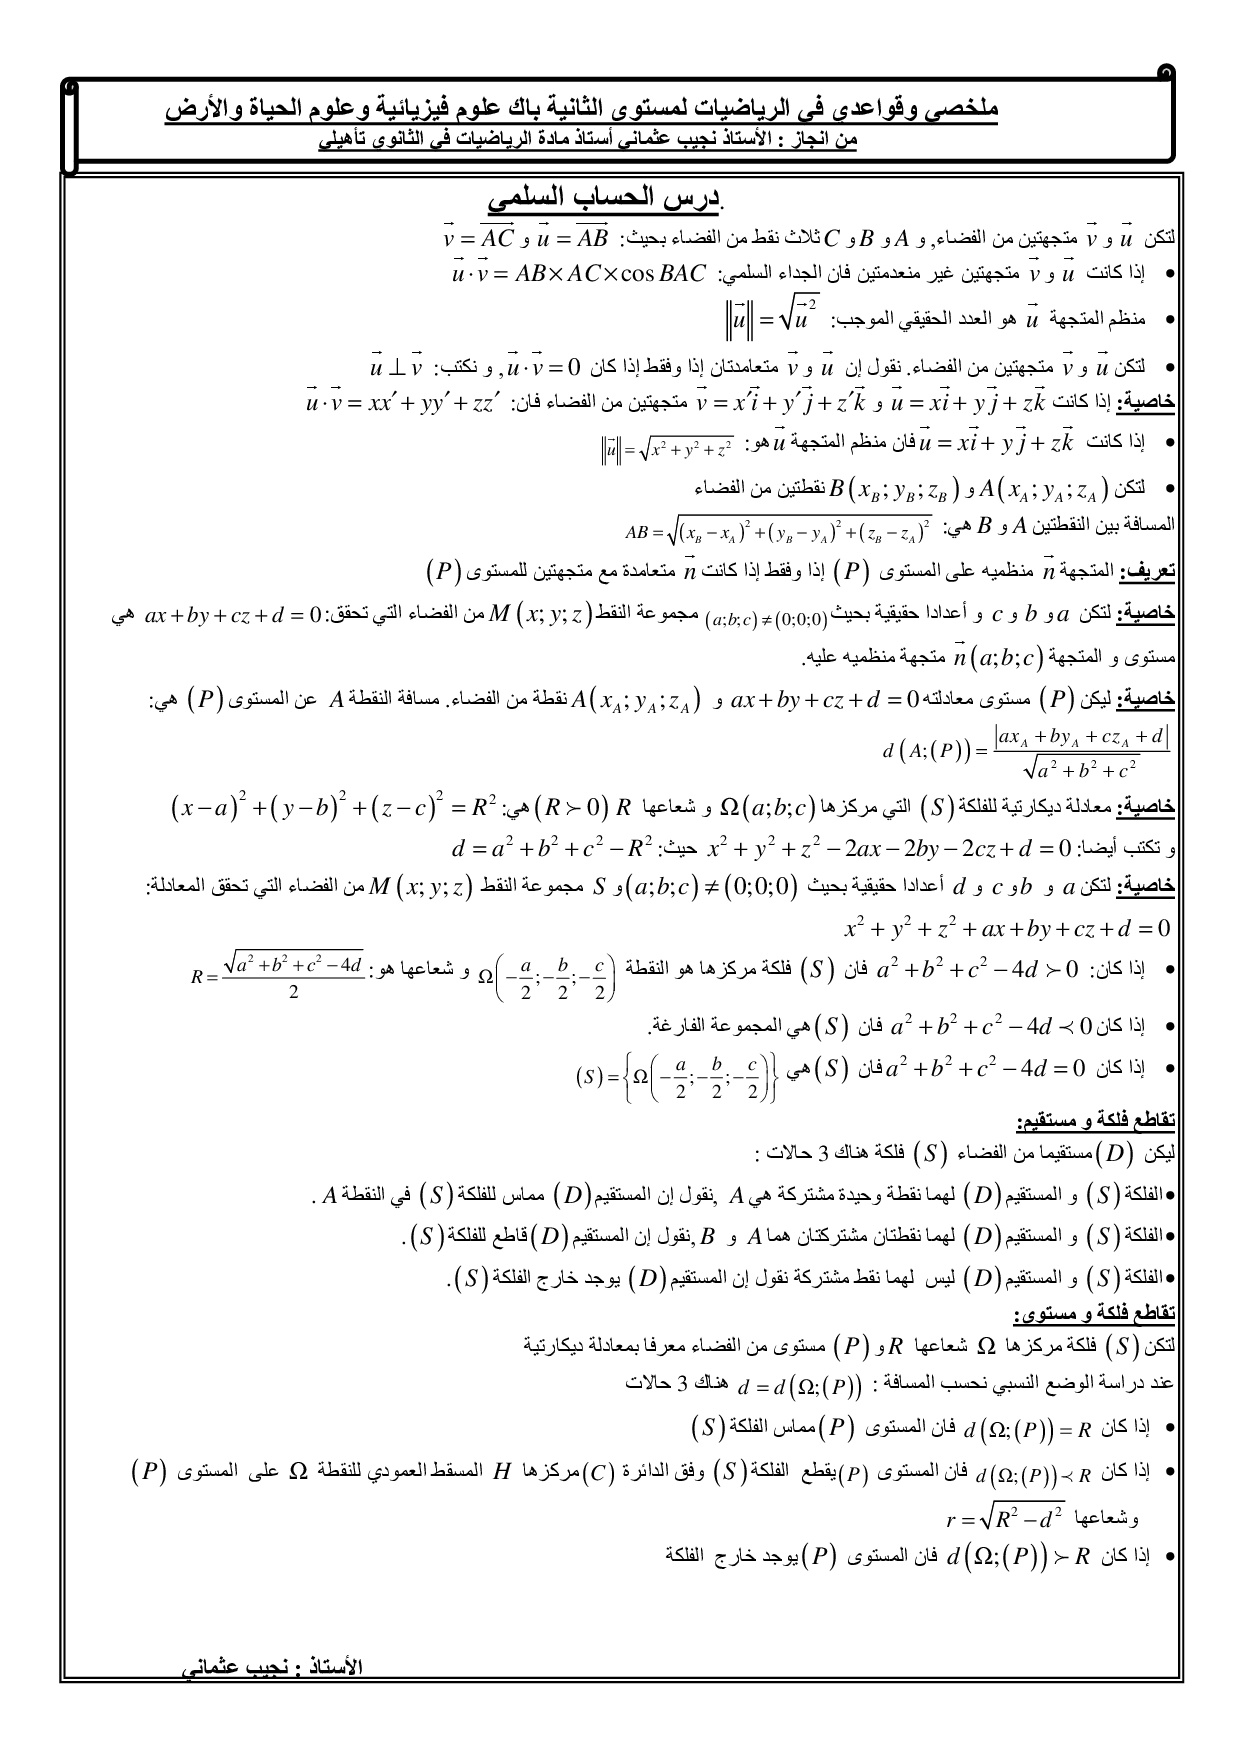 ملخصي وقواعدي في الرياضيات لمستوى الثانية باك علوم فيزيائية وعلوم الحياة والأرض
من انجاز : الأستاذ نجيب عثماني أستاذ مادة الرياضيات في الثانوي تأهيلي
درس الحساب السلمي.
لتكن $\vec{u}$ و $\vec{v}$ متجهتين من الفضاء, و $A$ و $B$ و $C$ ثلاث نقط من الفضاء بحيث: $\vec{u}=\overrightarrow{AB}$ و $\vec{v}=\overrightarrow{AC}$
• إذا كانت $\vec{u}$ و $\vec{v}$ متجهتين غير منعدمتين فان الجداء السلمي: $\vec{u}\cdot\vec{v}=AB\times AC\times\cos BAC$
• منظم المتجهة $\vec{u}$ هو العدد الحقيقي الموجب: $\|\vec{u}\|=\sqrt{\vec{u}^2}$
• لتكن $\vec{u}$ و $\vec{v}$ متجهتين من الفضاء. نقول إن $\vec{u}$ و $\vec{v}$ متعامدتان إذا وفقط إذا كان $\vec{u}\cdot\vec{v}=0$, و نكتب: $\vec{u}\perp\vec{v}$
خاصية: إذا كانت $\vec{u}=x\vec{i}+y\vec{j}+z\vec{k}$ و $\vec{v}=x'\vec{i}+y'\vec{j}+z'\vec{k}$ متجهتين من الفضاء فان: $\vec{u}\cdot\vec{v}=xx'+yy'+zz'$
• إذا كانت $\vec{u}=x\vec{i}+y\vec{j}+z\vec{k}$ فان منظم المتجهة $\vec{u}$ هو: $\|\vec{u}\|=\sqrt{x^2+y^2+z^2}$
• لتكن $A(x_A;y_A;z_A)$ و $B(x_B;y_B;z_B)$ نقطتين من الفضاء
المسافة بين النقطتين $A$ و $B$ هي: $AB=\sqrt{(x_B-x_A)^2+(y_B-y_A)^2+(z_B-z_A)^2}$
تعريف: المتجهة $\vec{n}$ منظميه على المستوى $(P)$ إذا وفقط إذا كانت $\vec{n}$ متعامدة مع متجهتين للمستوى $(P)$
خاصية: لتكن $a$ و $b$ و $c$ و أعدادا حقيقية بحيث $(a;b;c)\neq(0;0;0)$ مجموعة النقط $M(x;y;z)$ من الفضاء التي تحقق: $ax+by+cz+d=0$ هي
مستوى و المتجهة $\vec{n}(a;b;c)$ متجهة منظميه عليه.
خاصية: ليكن $(P)$ مستوى معادلته $ax+by+cz+d=0$ و $A(x_A;y_A;z_A)$ نقطة من الفضاء. مسافة النقطة $A$ عن المستوى $(P)$ هي:
$d(A;(P))=\frac{|ax_A+by_A+cz_A+d|}{\sqrt{a^2+b^2+c^2}}$
خاصية: معادلة ديكارتية للفلكة $(S)$ التي مركزها $\Omega(a;b;c)$ و شعاعها $R$ $(R\succ 0)$ هي: $(x-a)^2+(y-b)^2+(z-c)^2=R^2$
و تكتب أيضا: $x^2+y^2+z^2-2ax-2by-2cz+d=0$ حيث: $d=a^2+b^2+c^2-R^2$
خاصية: لتكن $a$ و $b$ و $c$ و $d$ أعدادا حقيقية بحيث $(a;b;c)\neq(0;0;0)$ و $S$ مجموعة النقط $M(x;y;z)$ من الفضاء التي تحقق المعادلة:
$x^2+y^2+z^2+ax+by+cz+d=0$
• إذا كان: $a^2+b^2+c^2-4d\succ 0$ فان $(S)$ فلكة مركزها هو النقطة $\Omega\left(-\frac{a}{2};-\frac{b}{2};-\frac{c}{2}\right)$ و شعاعها هو: $R=\frac{\sqrt{a^2+b^2+c^2-4d}}{2}$
• إذا كان $a^2+b^2+c^2-4d\prec 0$ فان $(S)$ هي المجموعة الفارغة.
• إذا كان $a^2+b^2+c^2-4d=0$ فان $(S)$ هي $(S)=\left\{\Omega\left(-\frac{a}{2};-\frac{b}{2};-\frac{c}{2}\right)\right\}$
تقاطع فلكة و مستقيم:
ليكن $(D)$ مستقيما من الفضاء $(S)$ فلكة هناك 3 حالات :
•الفلكة $(S)$ و المستقيم $(D)$ لهما نقطة وحيدة مشتركة هي $A$ ,نقول إن المستقيم $(D)$ مماس للفلكة $(S)$ في النقطة $A$ .
•الفلكة $(S)$ و المستقيم $(D)$ لهما نقطتان مشتركتان هما $A$ و $B$ ,نقول إن المستقيم $(D)$ قاطع للفلكة $(S)$.
•الفلكة $(S)$ و المستقيم $(D)$ ليس لهما نقط مشتركة نقول إن المستقيم $(D)$ يوجد خارج الفلكة $(S)$.
تقاطع فلكة و مستوى:
لتكن $(S)$ فلكة مركزها $\Omega$ شعاعها $R$ و $(P)$ مستوى من الفضاء معرفا بمعادلة ديكارتية
عند دراسة الوضع النسبي نحسب المسافة : $d=d(\Omega;(P))$ هناك 3 حالات
• إذا كان $d(\Omega;(P))=R$ فان المستوى $(P)$ مماس الفلكة $(S)$
• إذا كان $d(\Omega;(P))\prec R$ فان المستوى $(P)$ يقطع الفلكة $(S)$ وفق الدائرة $(C)$ مركزها $H$ المسقط العمودي للنقطة $\Omega$ على المستوى $(P)$
وشعاعها $r=\sqrt{R^2-d^2}$
• إذا كان $d(\Omega;(P))\succ R$ فان المستوى $(P)$ يوجد خارج الفلكة
الأستاذ : نجيب عثماني